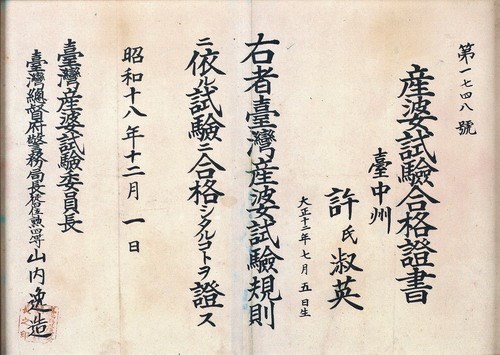 第一七四八號
産婆試驗合格證書
臺中州
許氏淑英
大正十二年七月五日生
右者臺灣産婆試驗規則
ニ依ル試驗ニ合格シタルコトヲ證ス
昭和十八年十二月一日
臺灣産婆試驗委員長
臺灣總督府警務局長從五位勲四等山内逸造